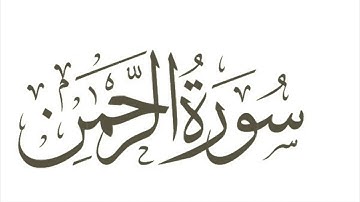 سُورَةُ الرَّحْمَنِ